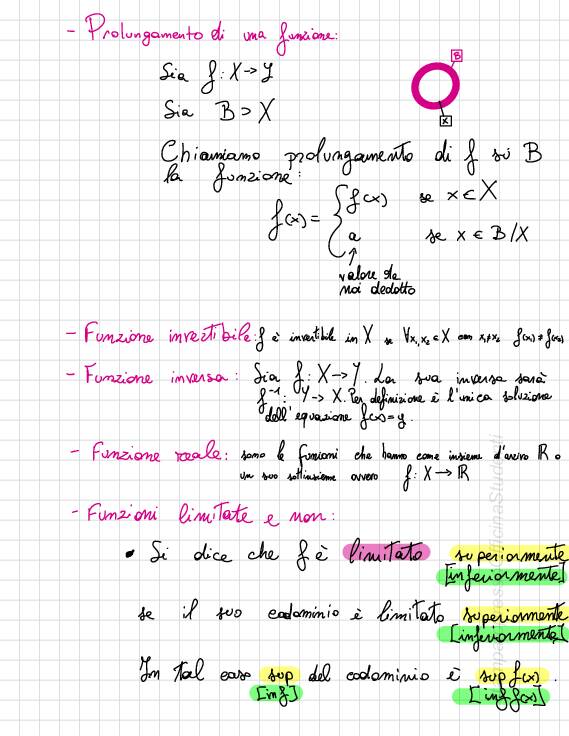 - Prolungamento di una funzione:
Sia f: X → Y
Sia B ⊃ X
B
X
Chiamiamo prolungamento di f su B
la funzione:
f(x) = { f(x) se x ∈ X
a se x ∈ B/X
↑
valore da
noi dedotto
- Funzione invertibile: f è invertibile in X se ∀x₁,x₂ ∈ X con x₁≠x₂ f(x₁) ≠ f(x₂)
- Funzione inversa: Sia f: X → Y. La sua inversa sarà
f⁻¹: Y → X. Per definizione è l'unica soluzione
dell'equazione f(x)=y.
- Funzione reale: sono le funzioni che hanno come insieme d'arrivo ℝ o
un suo sottinsieme ovvero f: X → ℝ
- Funzioni limitate e non:
• Si dice che f è limitato superiormente
[inferiormente]
se il suo codominio è limitato superiormente
[inferiormente]
In tal caso sup del codominio è sup f(x).
[inf] [inf f(x)]